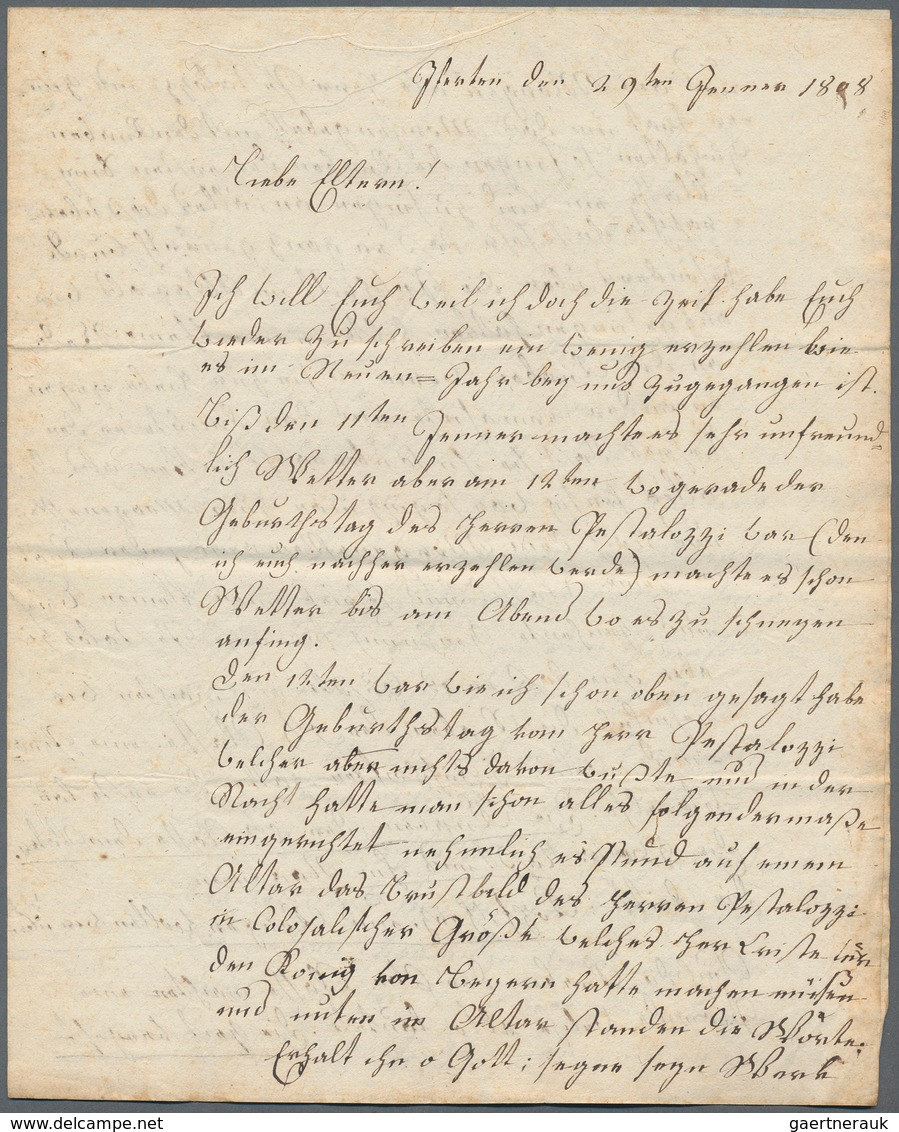 Iferten den 29ten Jenner 1808
Liebe Eltern!
Ich will Euch weil ich doch die Zeit habe Euch
wieder zu schreiben ein wenig erzehlen wie
es im Neuen=Jahr bey uns zugegangen ist.
Biß den 11ten Jenner machte es sehr unfreund=
lich Wetter aber am 12ten wo gerade der
Geburthstag des Herren Pestalozzi war (den
ich euch nachher erzehlen werde) machte es schon
Wetter bis am Abend wo es zu schneyen
anfing.
Den 12ten war wie ich schon oben gesagt habe
der Geburthstag vom Herr Pestalozzi
welcher aber nichts davon wußte und in der
Nacht hatte man schon alles folgendermaße
eingerichtet nehmlich es stund auf einem
Altar das Brustbild des Herren Pestalozzi
in Colosalischer Größe welches Her Criste für
den König von Beyern hatte machen müssen
und unten im Altar standen die Worte:
Erhalt ihn o Gott; segne seyn Werk
www.delcampe.net
gaertnerauk